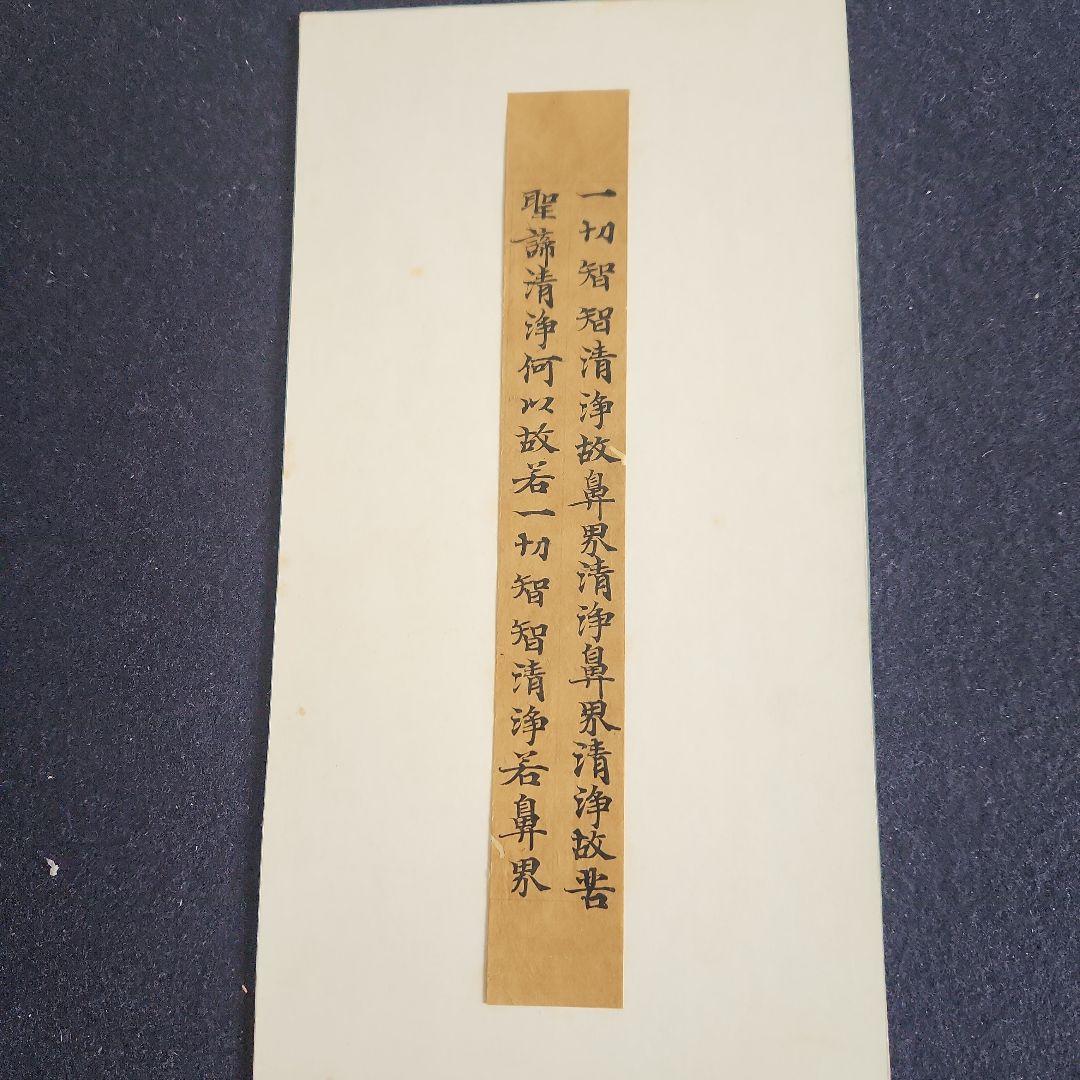 一切智智清淨故鼻界清淨鼻界清淨故苦
聖諦清淨何以故若一切智智清淨若鼻界